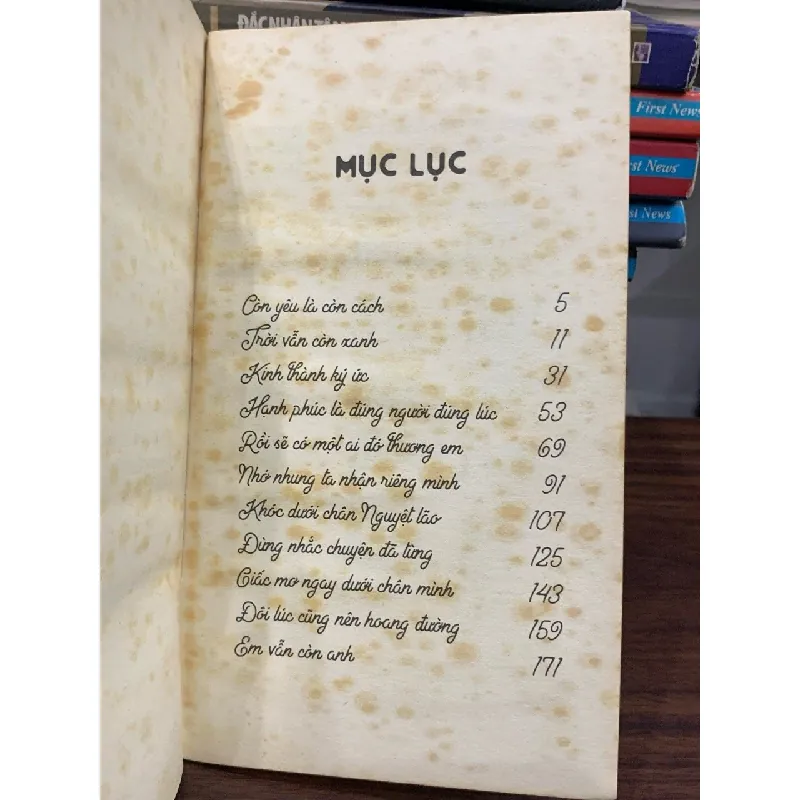 ĐẮC NHÂN TÂM
First News
First News
st News
MỤC LỤC
Còn yêu là còn cách 5
Trời vẫn còn xanh 11
Kinh thành ký ức 31
Hạnh phúc là đúng người đúng lúc 53
Rồi sẽ có một ai đó thương em 69
Nhớ nhung ta nhận riêng mình 91
Khóc dưới chân Nguyệt lão 107
Đừng nhắc chuyện đã từng 125
Giấc mơ ngay dưới chân mình 143
Đôi lúc cũng nên hoang đường 159
Em vẫn còn anh 171